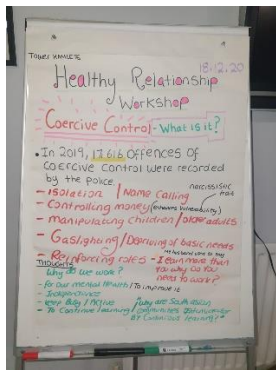 TOWER HAMLETS
18:12:20
Healthy Relationship
Workshop
Coercive Control - What is it?
• In 2019, 17,616 OFFENCES OF
COERCIVE CONTROL WERE RECORDED
BY THE POLICE
narcissistic trait
- ISOLATION / Name Calling
- Controlling money (enhance vulnerability)
- manipulating children / older adults
- Gaslighting / Depriving of basic needs
- Reinforcing roles - I earn more than
you why do you
need to work?
THOUGHTS
Why do we work?
- for our mental health / To improve it
- Independence
- Keep Busy / Active
- To Continue Learning
/ why are South Asian
communities
BY Continuous Learning?